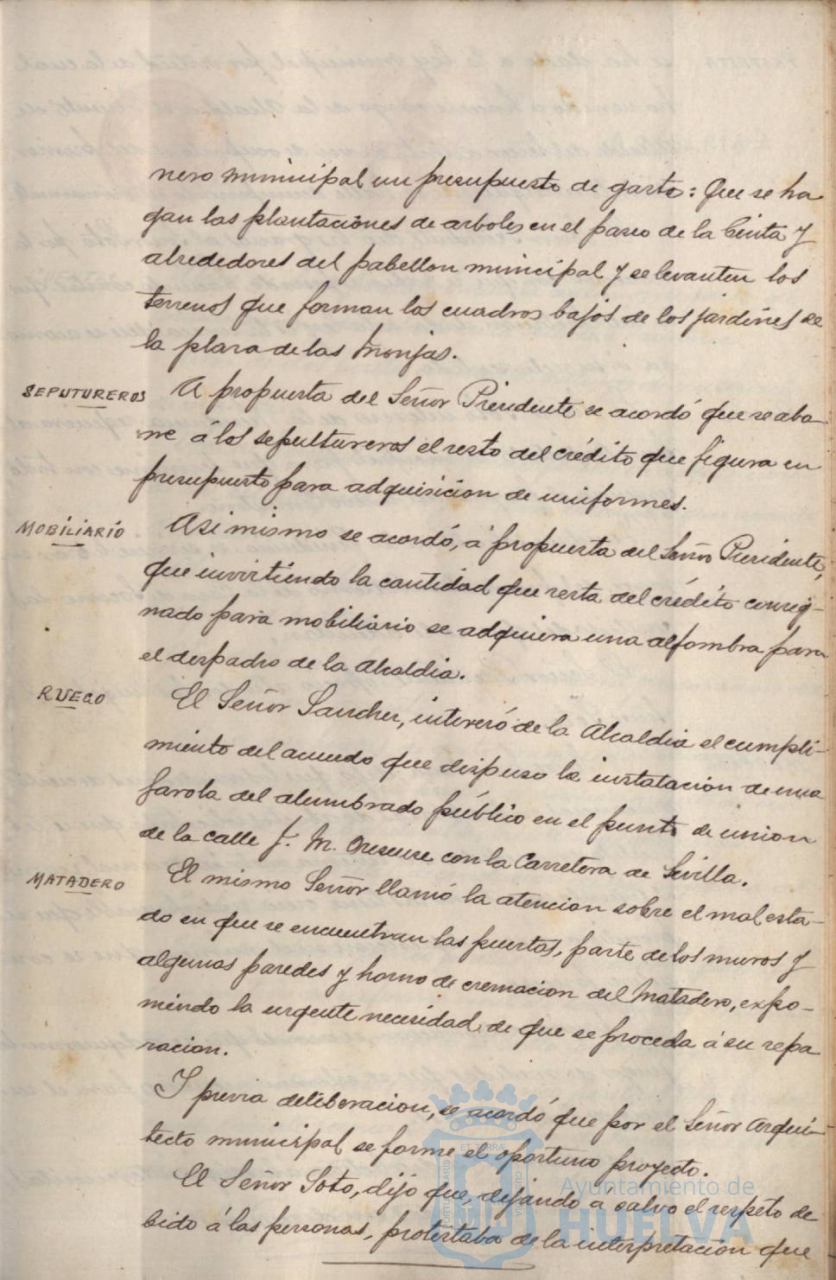 nero municipal un presupuesto de gasto: Que se ha
gan las plantaciones de arboles en el paseo de la Cinta y
alrededores del pabellon municipal y se levanten los
terrenos que forman los cuadros bajos de los jardines de
la plaza de las Monjas.
SEPUTUREROS
A propuesta del Señor Presidente se acordó que se abo
ne á los sepultureros el resto del crédito que figura en
presupuesto para adquisicion de uniformes.
MOBILIARIO
Asi mismo se acordó, á propuesta del Señor Presidente,
que invirtiendo la cantidad que resta del crédito consig-
nado para mobiliario se adquiera una alfombra para
el despacho de la Alcaldia.
RUEGO
El Señor Sanchez, interesó de la Alcaldia el cumpli-
miento del acuerdo que dispuso la instalacion de una
farola del alumbrado público en el punto de union
de la calle J. M. con la Carretera de Sevilla.
MATADERO
El mismo Señor llamó la atencion sobre el mal esta-
do en que se encuentran las puertas, parte de los muros y
algunas paredes y horno de cremacion del Matadero, expo-
niendo la urgente necesidad de que se proceda á su repa
racion.
Y previa deliberacion, se acordó que por el Señor Arqui-
tecto municipal se forme el oportuno proyecto.
El Señor Soto, dijo que, dejando a salvo el respeto de
bido á las personas, protestaba de la interpretacion que
Ayuntamiento de
HUELVA